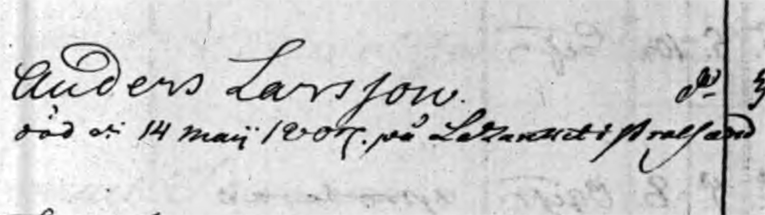 Anders Larsson. do
död d: 14 maij 1807. på Lazarettet i Stralsund